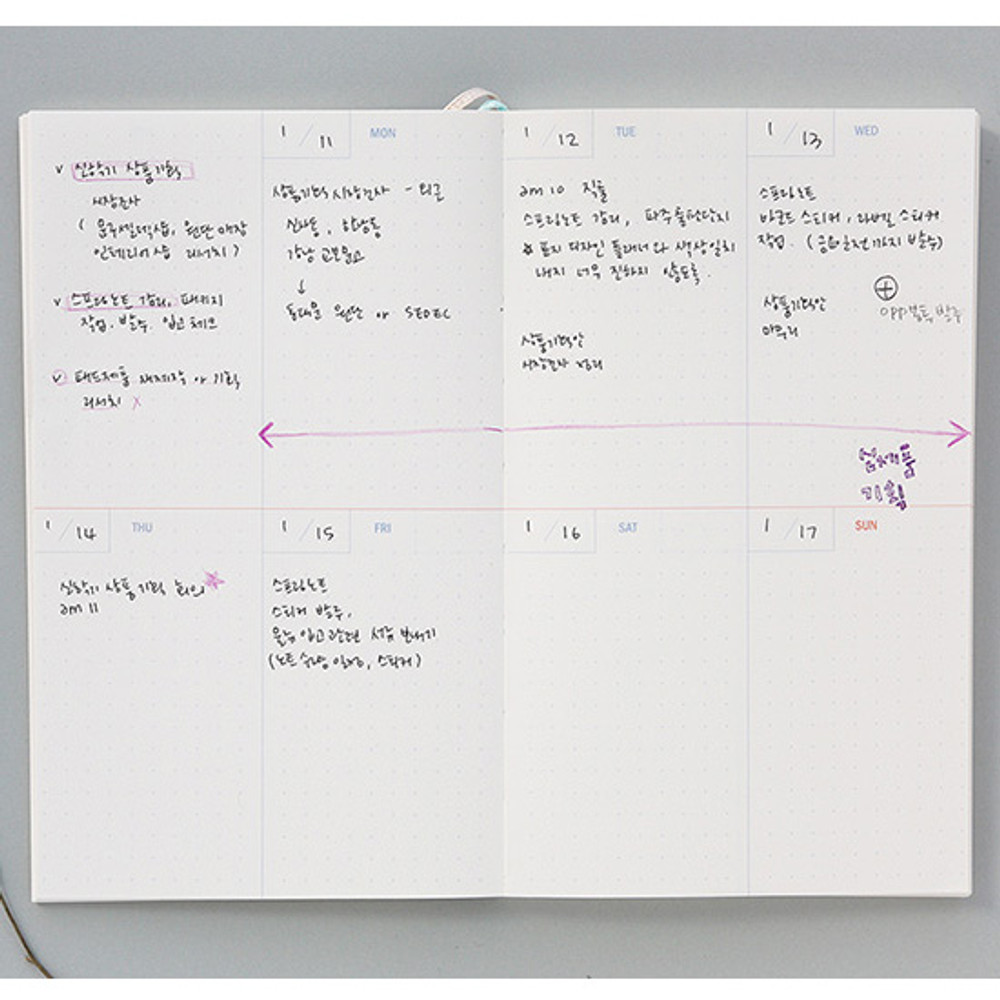 v 신학기 상품기획
시장조사
( 문구편집샵, 원단매장
인테리어샵 리서치 )
v 스프링노트 감리, 패키지
작업, 발주. 입고 체크
v 테스트제품 재제작 or 기획
리서치 X
1/11 MON
상품기획 시장조사 - 외근
신사동,
강남 교보문고
↓
동대문 원단 or SEDEC
1/12 TUE
am 10 직출
스프링노트 감리, 파주출판단지
표지 디자인 플래너와 색상일치
내지 너무 진하지 않도록.
상품기획안
시장조사 정리
1/13 WED
스프링노트
바코드 스티커, 라벨 스티커
작업. (금요일전까지 발주)
상품기획안
마무리
⊕
OPP봉투 발주
신제품
기획
1/14 THU
신학기 상품기획 회의
am 11
1/15 FRI
스프링노트
스티커 발주,
입고관련 서류 보내기
(노트 수량 일정, 스티커)
1/16 SAT
1/17 SUN